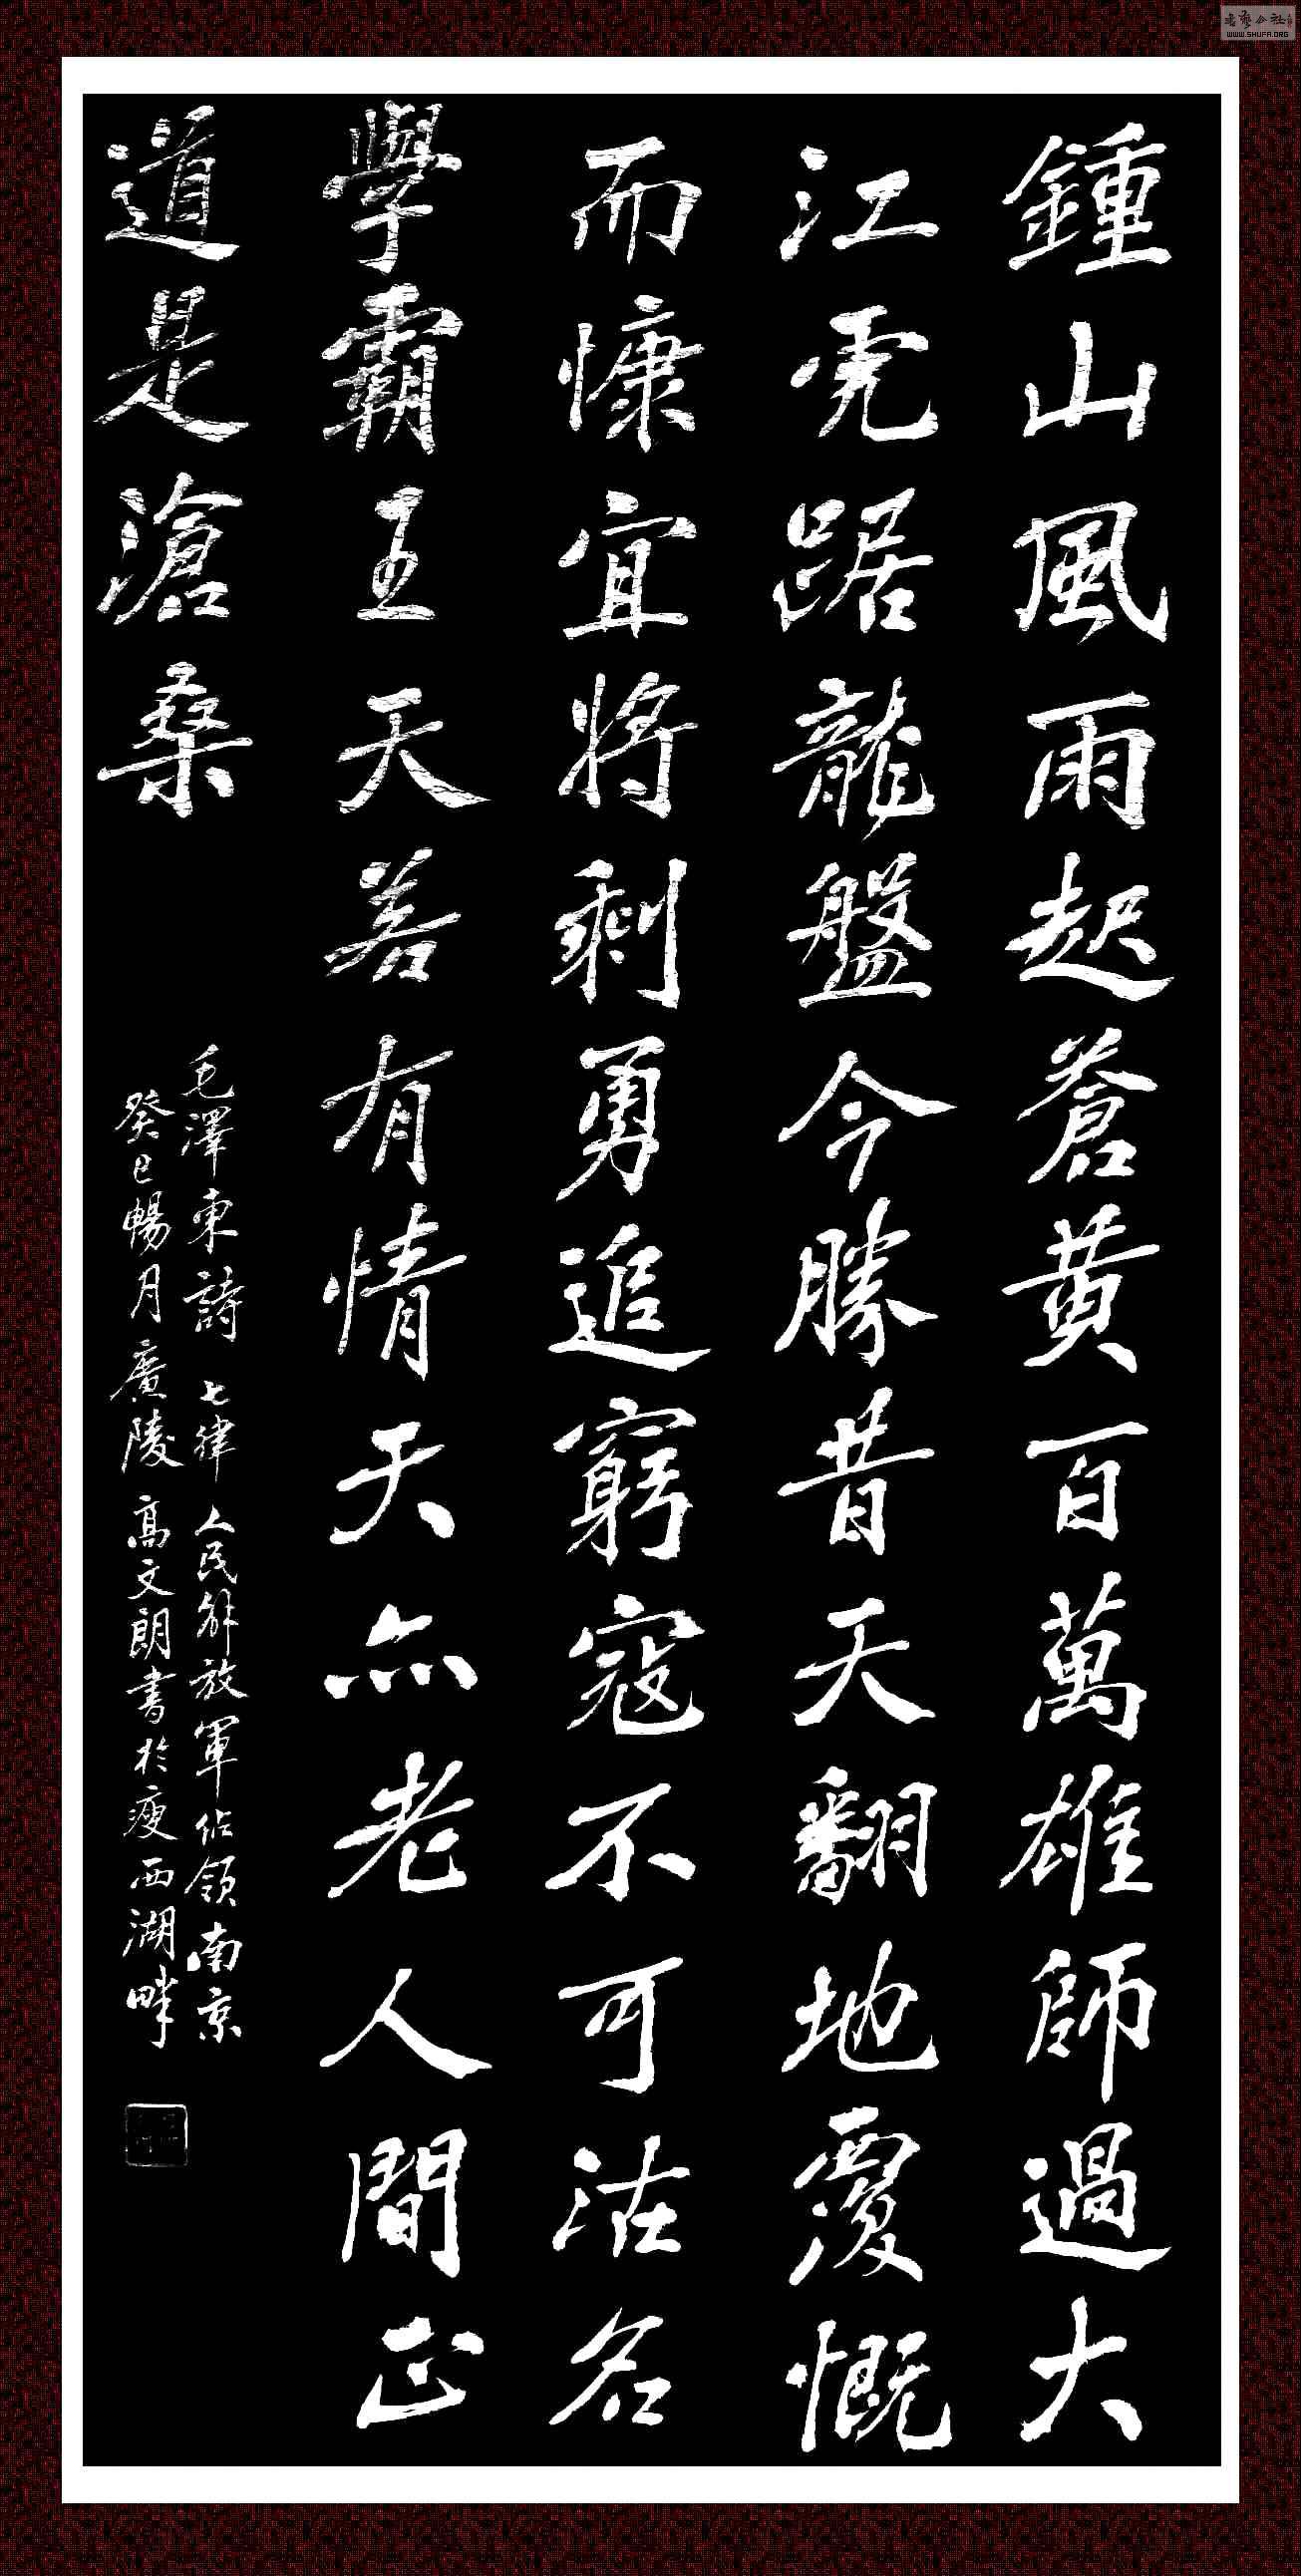 鍾山風雨起蒼黄百萬雄師過大
江虎踞龍盤今勝昔天翻地覆慨
而慷宜將剩勇追窮寇不可沽名
學霸王天若有情天亦老人間正
道是滄桑
毛澤東詩 七律 人民解放軍佔領南京
癸巳暢月廣陵 高文朗書於瘦西湖畔
書藝公社
WWW.SHUFA.ORG